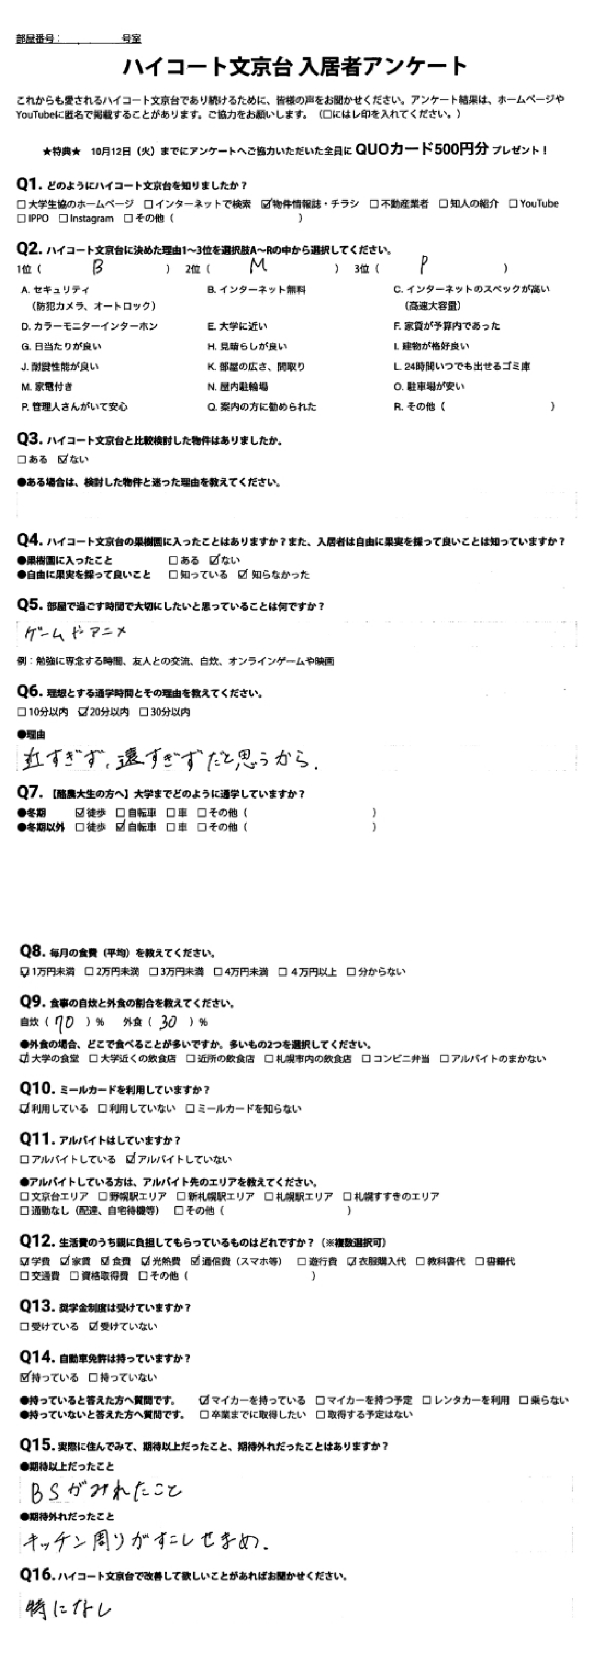 部屋番号： 号室
ハイコート文京台 入居者アンケート
これからも愛されるハイコート文京台であり続けるために、皆様の声をお聞かせください。アンケート結果は、ホームページや
YouTubeに匿名で掲載することがあります。ご協力をお願いします。（□にはレ印を入れてください。）
★特典★ 10月12日（火）までにアンケートへご協力いただいた全員に QUOカード500円分 プレゼント！
Q1. どのようにハイコート文京台を知りましたか？
□大学生協のホームページ □インターネットで検索 ☑物件情報誌・チラシ □不動産業者 □知人の紹介 □YouTube
□IPPO □Instagram □その他（ ）
Q2. ハイコート文京台に決めた理由1〜3位を選択肢A〜Rの中から選択してください。
1位（ B ） 2位（ M ） 3位（ P ）
A. セキュリティ B. インターネット無料 C. インターネットのスペックが高い
（防犯カメラ、オートロック） （高速大容量）
D. カラーモニターインターホン E. 大学に近い F. 家賃が予算内であった
G. 日当たりが良い H. 見晴らしが良い I. 建物が格好良い
J. 耐震性能が良い K. 部屋の広さ、間取り L. 24時間いつでも出せるゴミ庫
M. 家電付き N. 屋内駐輪場 O. 駐車場が安い
P. 管理人さんがいて安心 Q. 案内の方に勧められた R. その他（ ）
Q3. ハイコート文京台と比較検討した物件はありましたか。
□ある ☑ない
●ある場合は、検討した物件と迷った理由を教えてください。
Q4. ハイコート文京台の果樹園に入ったことはありますか？また、入居者は自由に果実を採って良いことは知っていますか？
●果樹園に入ったこと □ある ☑ない
●自由に果実を採って良いこと □知っている ☑知らなかった
Q5. 部屋で過ごす時間で大切にしたいと思っていることは何ですか？
ゲームやアニメ
例：勉強に専念する時間、友人との交流、自炊、オンラインゲームや映画
Q6. 理想とする通学時間とその理由を教えてください。
□10分以内 ☑20分以内 □30分以内
●理由
近すぎず、遠すぎずだと思うから.
Q7.【酪農大生の方へ】大学までどのように通学していますか？
●冬期 ☑徒歩 □自転車 □車 □その他（ ）
●冬期以外 □徒歩 ☑自転車 □車 □その他（ ）
Q8. 毎月の食費（平均）を教えてください。
☑1万円未満 □2万円未満 □3万円未満 □4万円未満 □４万円以上 □分からない
Q9. 食事の自炊と外食の割合を教えてください。
自炊（ 70 ）% 外食（ 30 ）%
●外食の場合、どこで食べることが多いですか。多いもの2つを選択してください。
☑大学の食堂 □大学近くの飲食店 □近所の飲食店 □札幌市内の飲食店 □コンビニ弁当 □アルバイトのまかない
Q10. ミールカードを利用していますか？
☑利用している □利用していない □ミールカードを知らない
Q11. アルバイトはしていますか？
□アルバイトしている ☑アルバイトしていない
●アルバイトしている方は、アルバイト先のエリアを教えてください。
□文京台エリア □野幌駅エリア □新札幌駅エリア □札幌駅エリア □札幌すすきのエリア
□通勤なし（配達、自宅待機等） □その他（ ）
Q12. 生活費のうち親に負担してもらっているものはどれですか？（※複数選択可）
☑学費 ☑家賃 ☑食費 ☑光熱費 ☑通信費（スマホ等） □遊行費 ☑衣服購入代 □教科書代 □書籍代
□交通費 □資格取得費 □その他（ ）
Q13. 奨学金制度は受けていますか？
□受けている ☑受けていない
Q14. 自動車免許は持っていますか？
☑持っている □持っていない
●持っていると答えた方へ質問です。 ☑マイカーを持っている □マイカーを持つ予定 □レンタカーを利用 □乗らない
●持っていないと答えた方へ質問です。 □卒業までに取得したい □取得する予定はない
Q15. 実際に住んでみて、期待以上だったこと、期待外れだったことはありますか？
●期待以上だったこと
BSがみれたこと
●期待外れだったこと
キッチン周りがすこしせまめ.
Q16. ハイコート文京台で改善して欲しいことがあればお聞かせください。
特になし